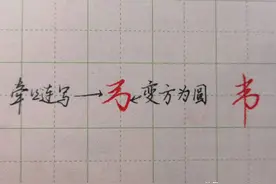 牵丝连写→ ←变方为圆 韦